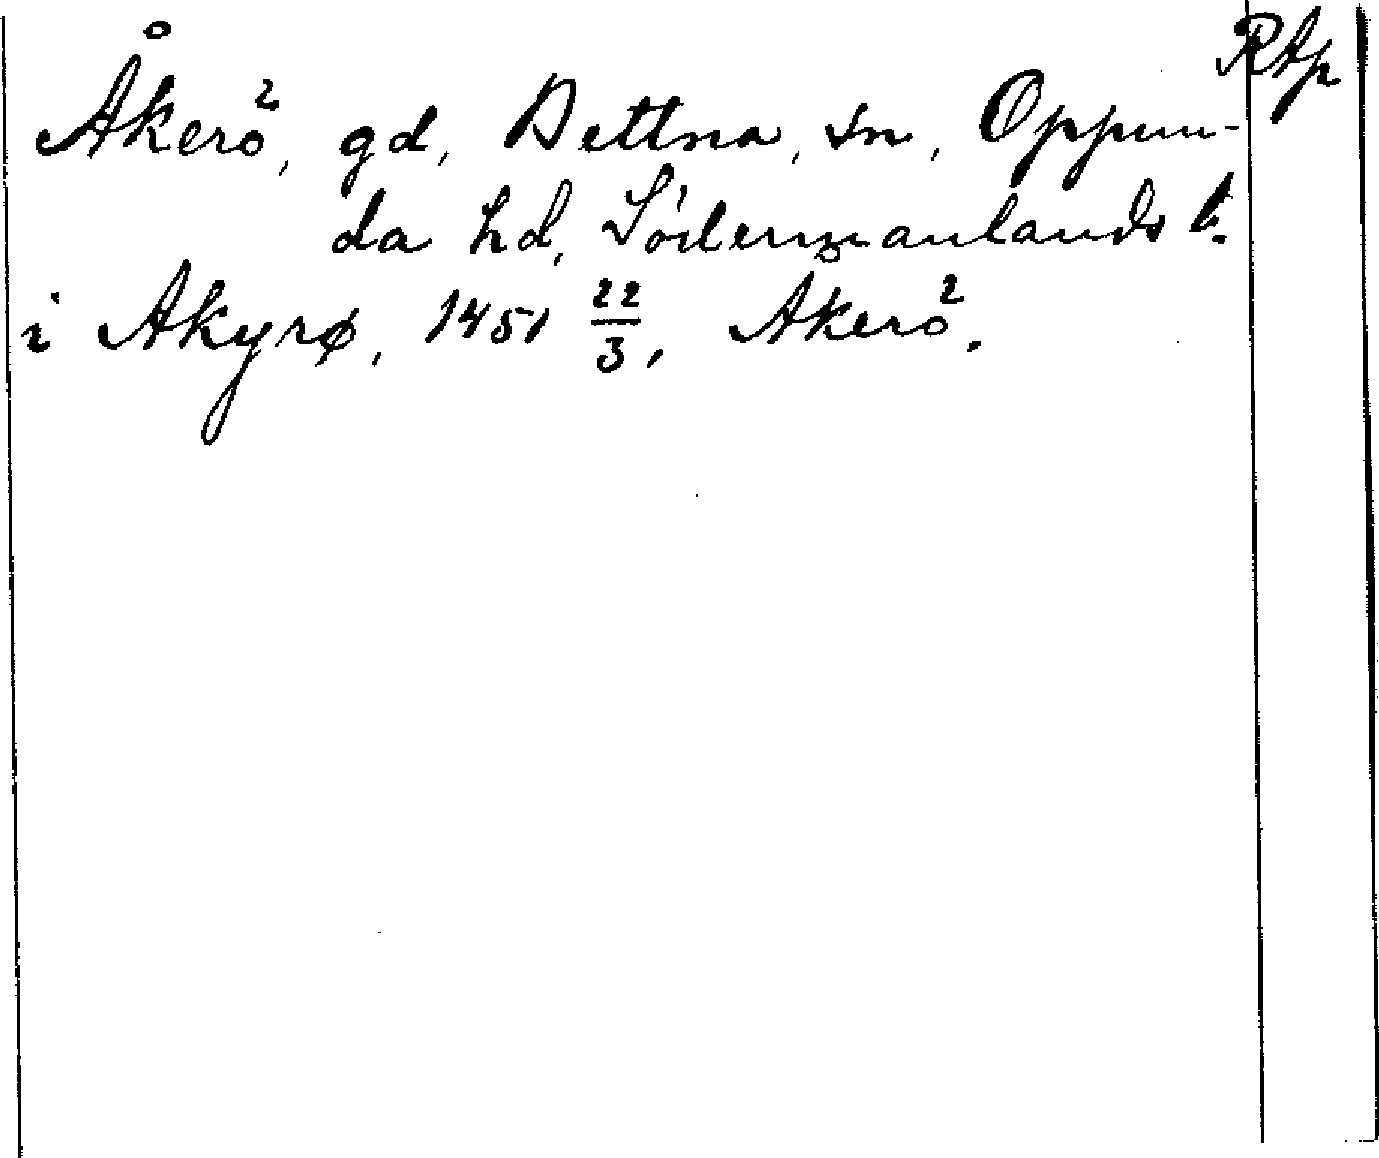 RAp
Åkerö, gd, Dettna, sn, Oppun-
da hd, Södermanlands l.
i Akyrø, 1451 22/3, Akerö.